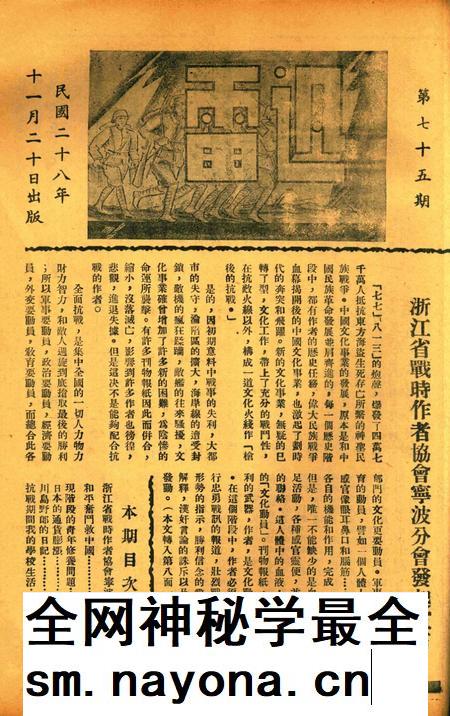 第七十五期
民國二十八年
十一月二十日出版
浙江省戰時作者協會寧波分會發
「七七」「八一三」的炮聲，爆發了四萬七
千萬人抵抗東方海盜生死存亡所繫的神聖民
族戰爭。中國文化事業的發展，原本是和中
國民族革命發展並肩齊進的，每一個歷史階
段中，都有作者的歷史任務，偉大民族戰爭
血幕揭開後的中國文化事業，也激起了劃時
代的奔突和飛躍。新的文化事業，無疑的已
轉了型，文化工作，帶上了充分的戰鬥性，
在抗敵火線以外，構成一道文化火綫作「槍
後的抗戰。」
是的，因初期意料中戰事的失利，大都
市的失守，淪陷區的擴大，海岸線的遭受封
鎖，敵機的瘋狂蹂躪，敵艦的往來騷擾，文
化事業確曾增加了許多新的困難，為陰慘的
命運所襲擊。有許多刊物報紙因此而併合，
縮小，沒落滅亡，影響到許多作者也徬徨，
悲觀，進退失據。但是這決不是能夠配合抗
戰的作者。
全面抗戰，是集中全國的一切人力物力
財力智力，和敵人週旋到底搶取最後的勝利
；所以軍事要動員，政治要動員，經濟要動
員，外交要動員，教育要動員，而綜合此各
部門的文化更要動員。軍事
育的動員，譬如一個人體上
感官像眼耳鼻口和腦筋…
各自的機能和作用，完成
但是，唯一不能缺少的是血
足活動，各種感官靈便，並
的聯絡。這人體中的血液，
的「文化動員」。刊物報紙，
利的武器，作者，是文化動
在這個階段中，作者必須
行忠勇戰訊的報道，壯烈戰
形勢的指示，勝利信念的
解釋，漢奸言論的誅斥以及
發動。（本文轉入第八面
本期目次
浙江省戰時作者協會寧波
和平奮鬥救中國……
現階段的青年修養問題…
日本的通貨膨漲……
川島野郎的日記……
抗戰期間我的學校生活…
全网神秘学最全
sm.nayona.cn